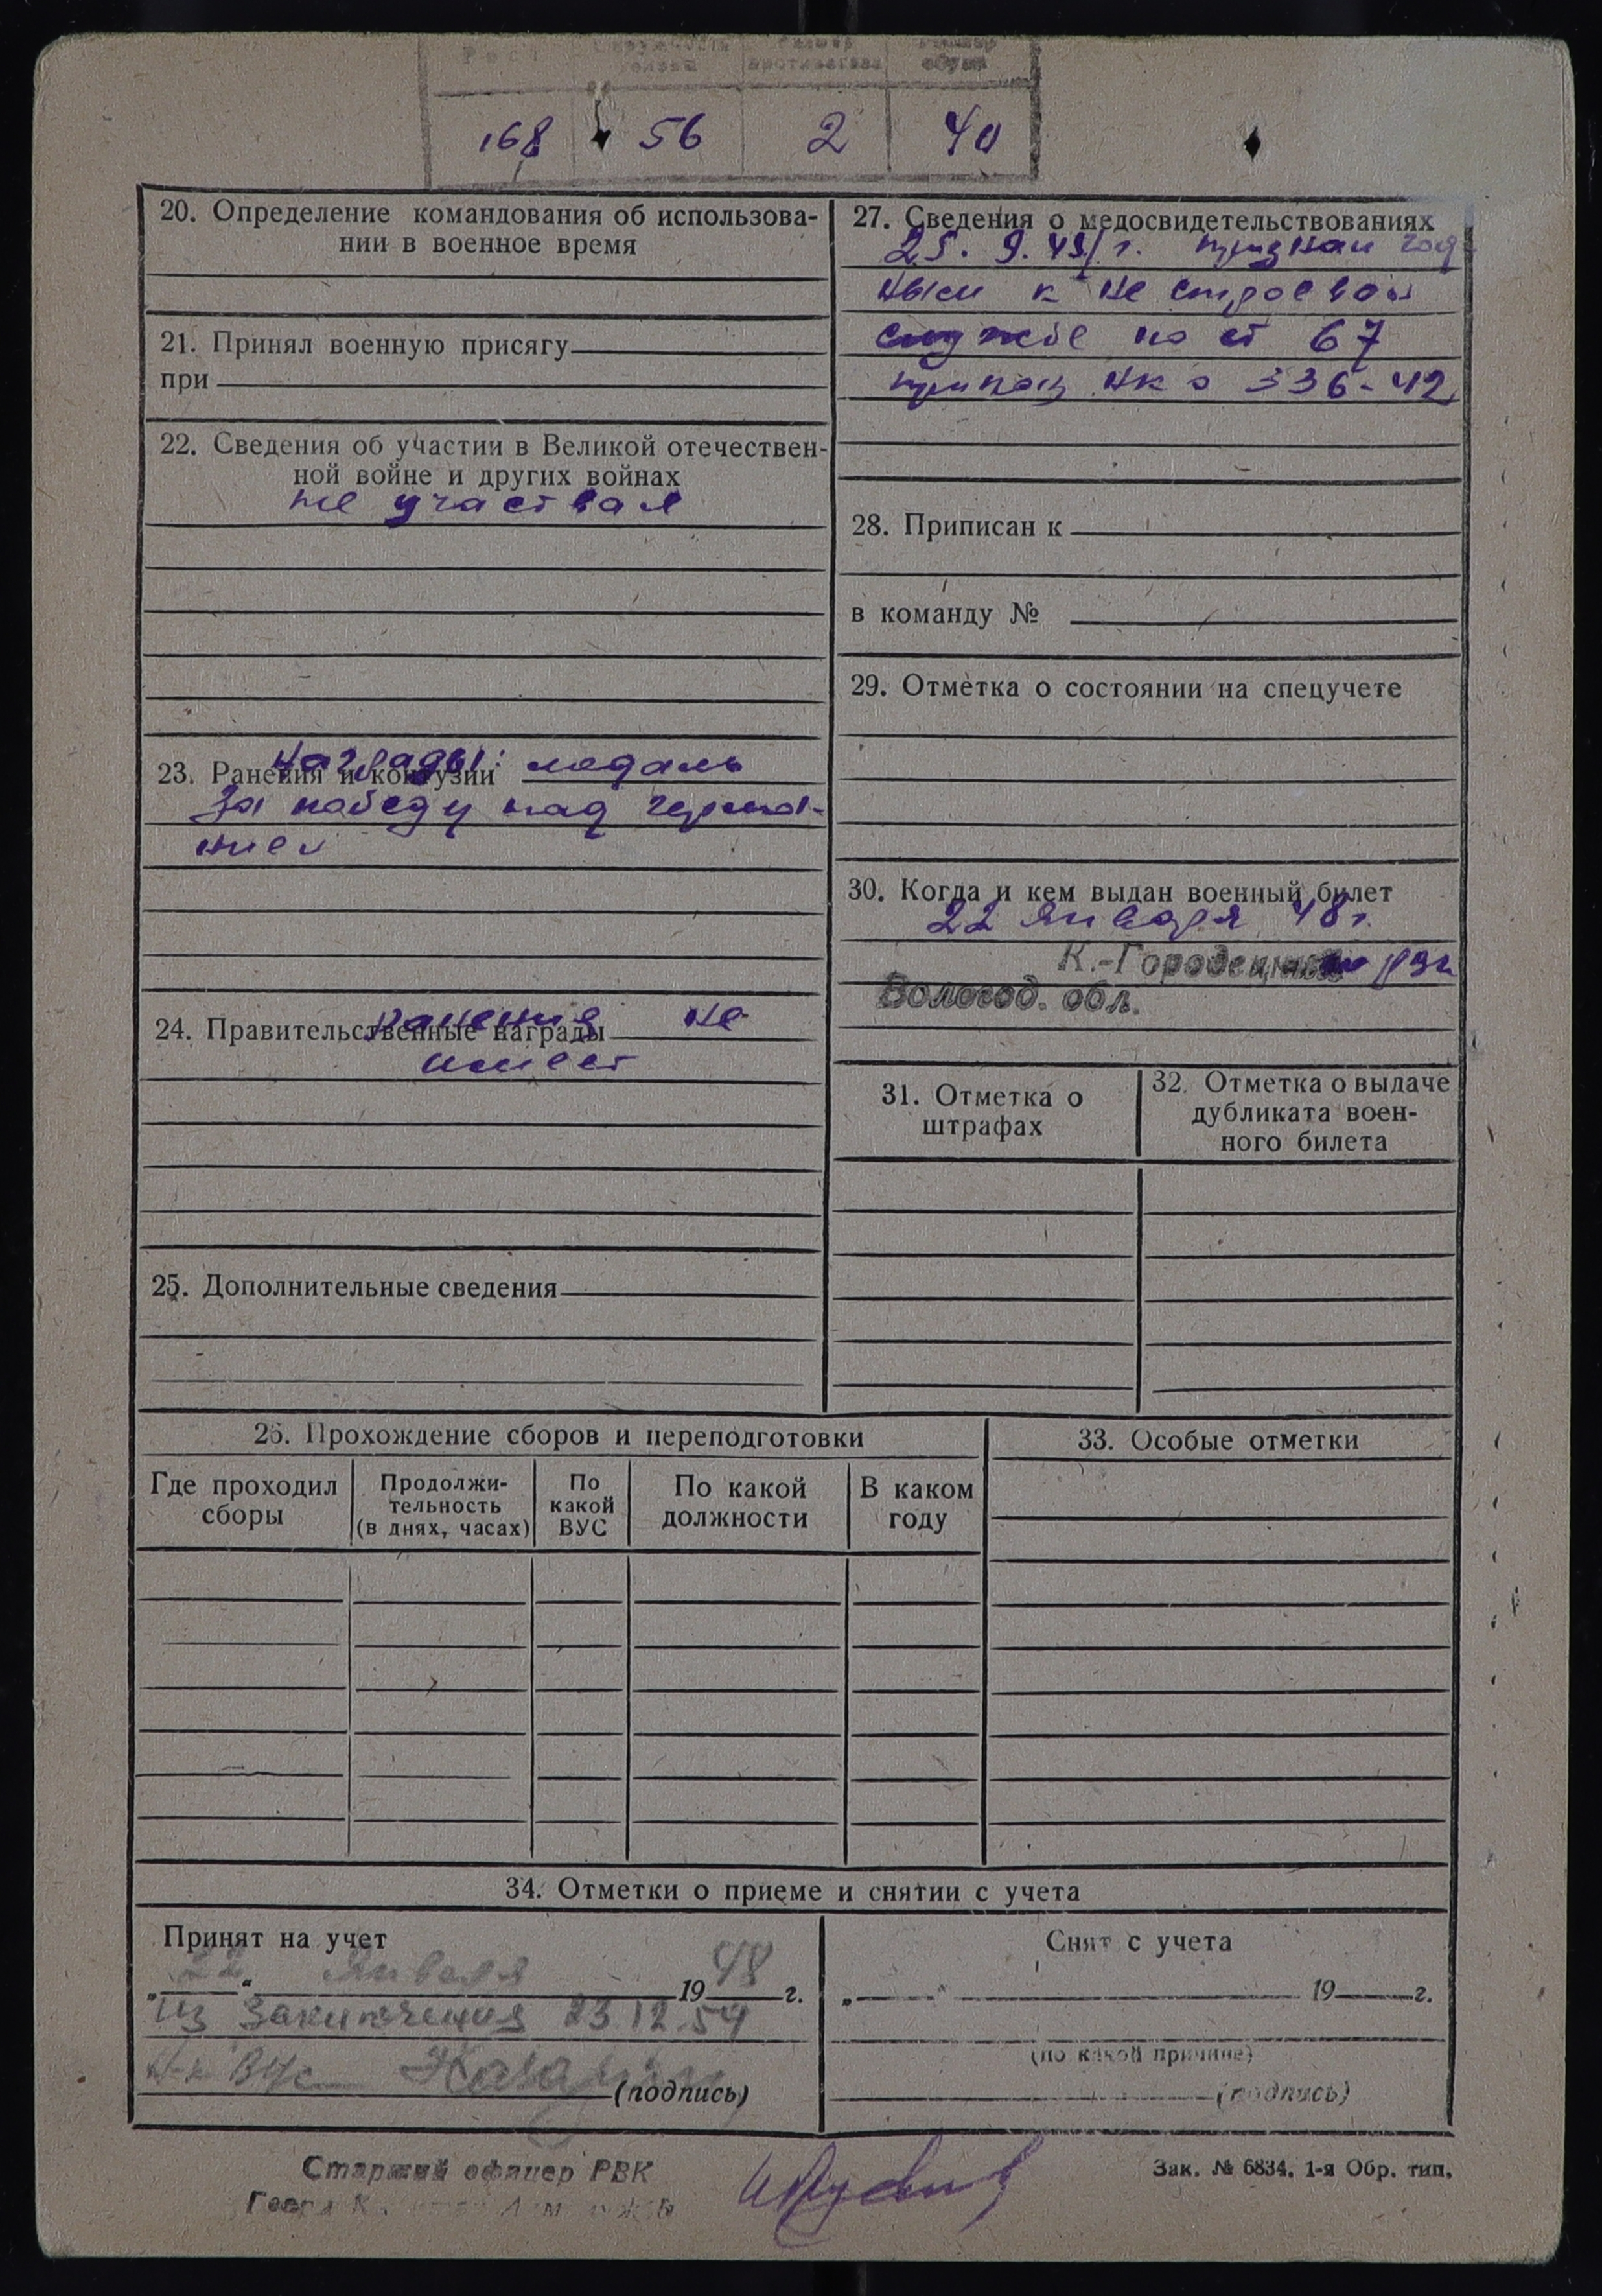 Рост окружность головы размер противогаза размер обуви
168 56 2 40
20. Определение командования об использова-
нии в военное время
21. Принял военную присягу
при
22. Сведения об участии в Великой отечествен-
ной войне и других войнах
не участвал
23. Ранения и контузии награды: медаль
За победу над герма-
нией
24. Правительственные награды ранения не
имеет
25. Дополнительные сведения
27. Сведения о медосвидетельствованиях
25. 9. 49 г. признан год
ным к не строевой
службе по ст 67
приказ НКО 336-42
28. Приписан к
в команду №
29. Отметка о состоянии на спецучете
30. Когда и кем выдан военный билет
22 января 48 г.
К.-Городецким РВК
Вологод. обл.
31. Отметка о
штрафах
32. Отметка о выдаче
дубликата воен-
ного билета
26. Прохождение сборов и переподготовки
Где проходил
сборы
Продолжи-
тельность
(в днях, часах)
По
какой
ВУС
По какой
должности
В каком
году
33. Особые отметки
34. Отметки о приеме и снятии с учета
Принят на учет
„22“ Января 1948 г.
Из заключения 23.12.54
(подпись)
Снят с учета
„ “ 19 г.
(по какой причине)
(подпись)
Старший офицер РВК
Зак. № 6834. 1-я Обр. тип.